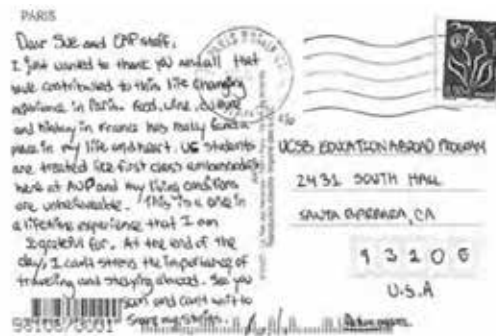 PARIS
Dear Sue and EAP staff,
I just wanted to thank you and all that
have contributed to this life changing
experience in Paris. Food, wine, culture
and history in France has really found a
place in my life and heart. US students
are treated like first class
here at AUP and my living conditions
are unbelievable. This is a once in
a lifetime experience that I am
so grateful for. At the end of the
day, I can't stress the importance of
traveling and studying abroad. See you
soon and can't wait to
share my stories.
PARIS
UCSB EDUCATION ABROAD PROGRAM
2431 SOUTH HALL
SANTA BARBARA, CA
9 3 1 0 6
U.S.A
93106/3001